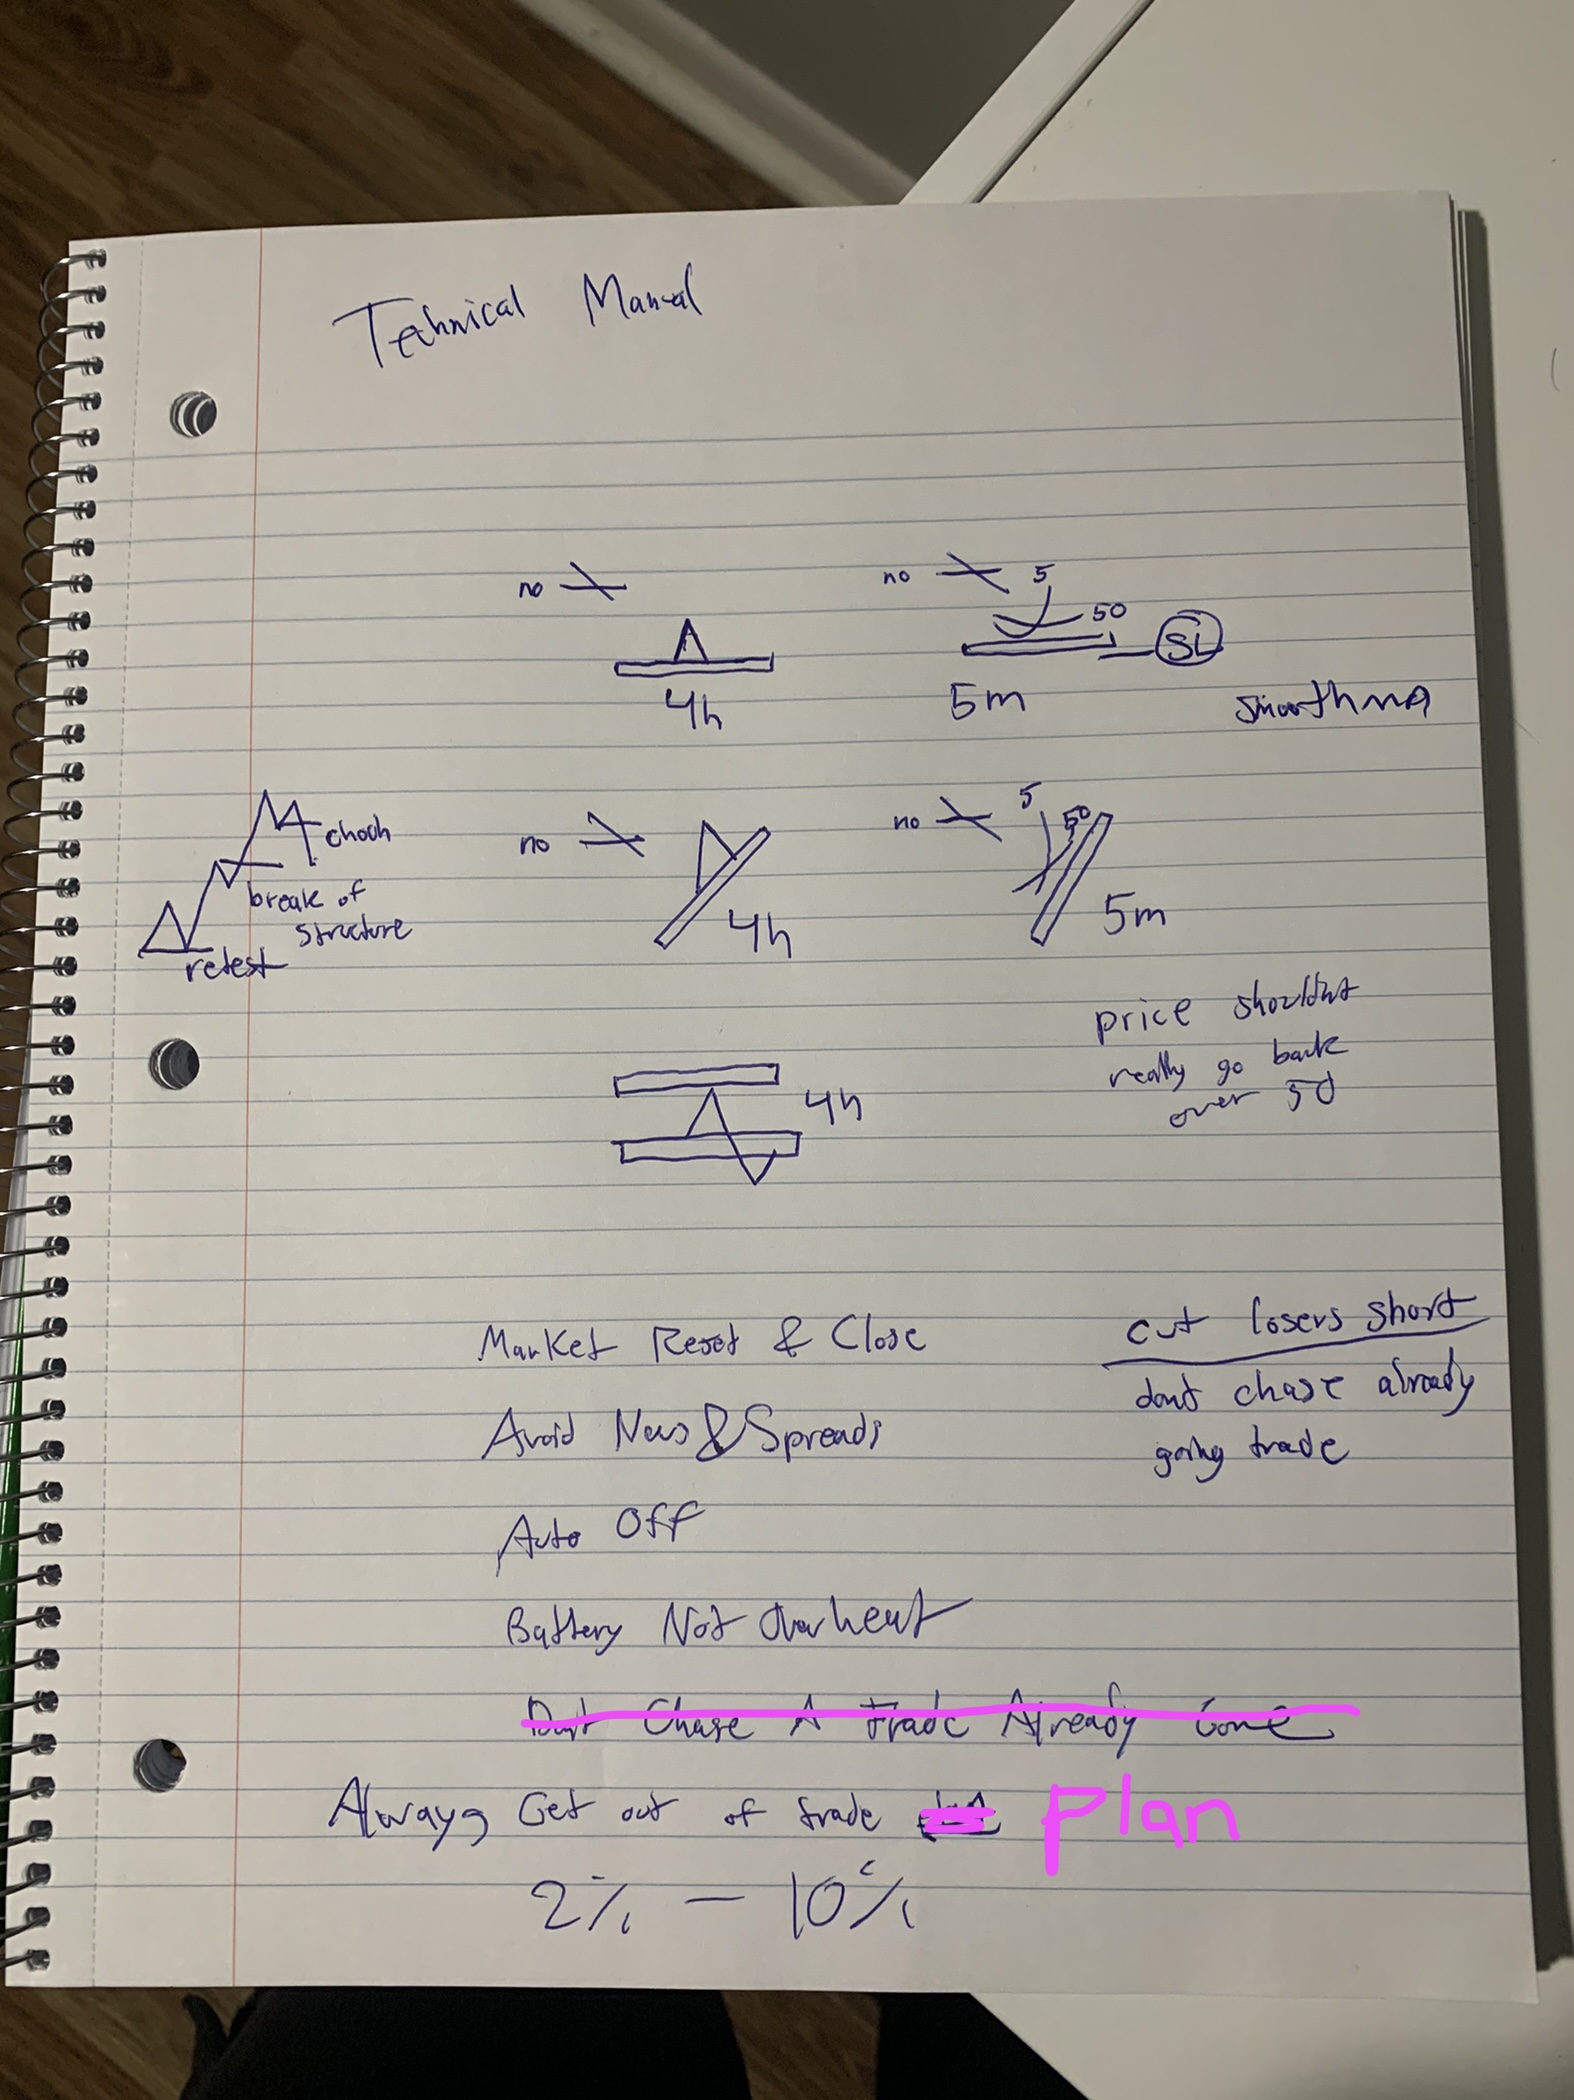 Technical Manual
no
no
5
50
SL
4h
5m
smooth MA
choch
no
no
5
50
break of
structure
4h
5m
retest
price shouldnt
really go back
over 50
4h
Market Reset & Close
cut losers short
dont chase already
going trade
Avoid News & Spreads
Auto Off
Battery Not Overheat
Don't Chase A Trade Already Gone
Always Get out of trade Plan
2% - 10%